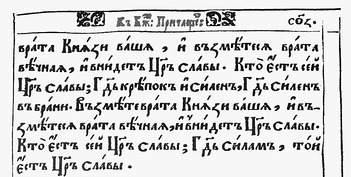 вра́та Кнѧ́зи ва́шѧ , и҆ възмѣ́тесѧ вра́та
вѣ́чнаѧ , и҆ вни́детъ Цр҃ь сла́вы . Кто̀ є҆́сть се́й
Цр҃ь сла́вы ; Гд҃ь крѣ́покъ и҆ си́ленъ , Гд҃ь си́ленъ
въ бра́ни . Възмѣ́те врата̀ Кнѧ́зи ва́шѧ , и҆ въ-
змѣ́тесѧ вра́та вѣ́чнаѧ , и҆ вни́детъ Цр҃ь сла́вы .
Кто̀ є҆́сть се́й Цр҃ь сла́вы ; Гд҃ь си́ламъ , то́й
є҆́сть Цр҃ь сла́вы .